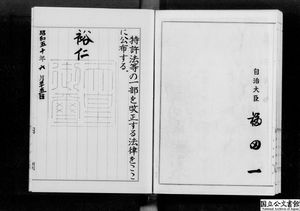 特許法等の一部を改正する法律をここ
に公布する。
裕仁
昭和五十年
自治大臣
福田一
国立公文書館
National Archives of Japan